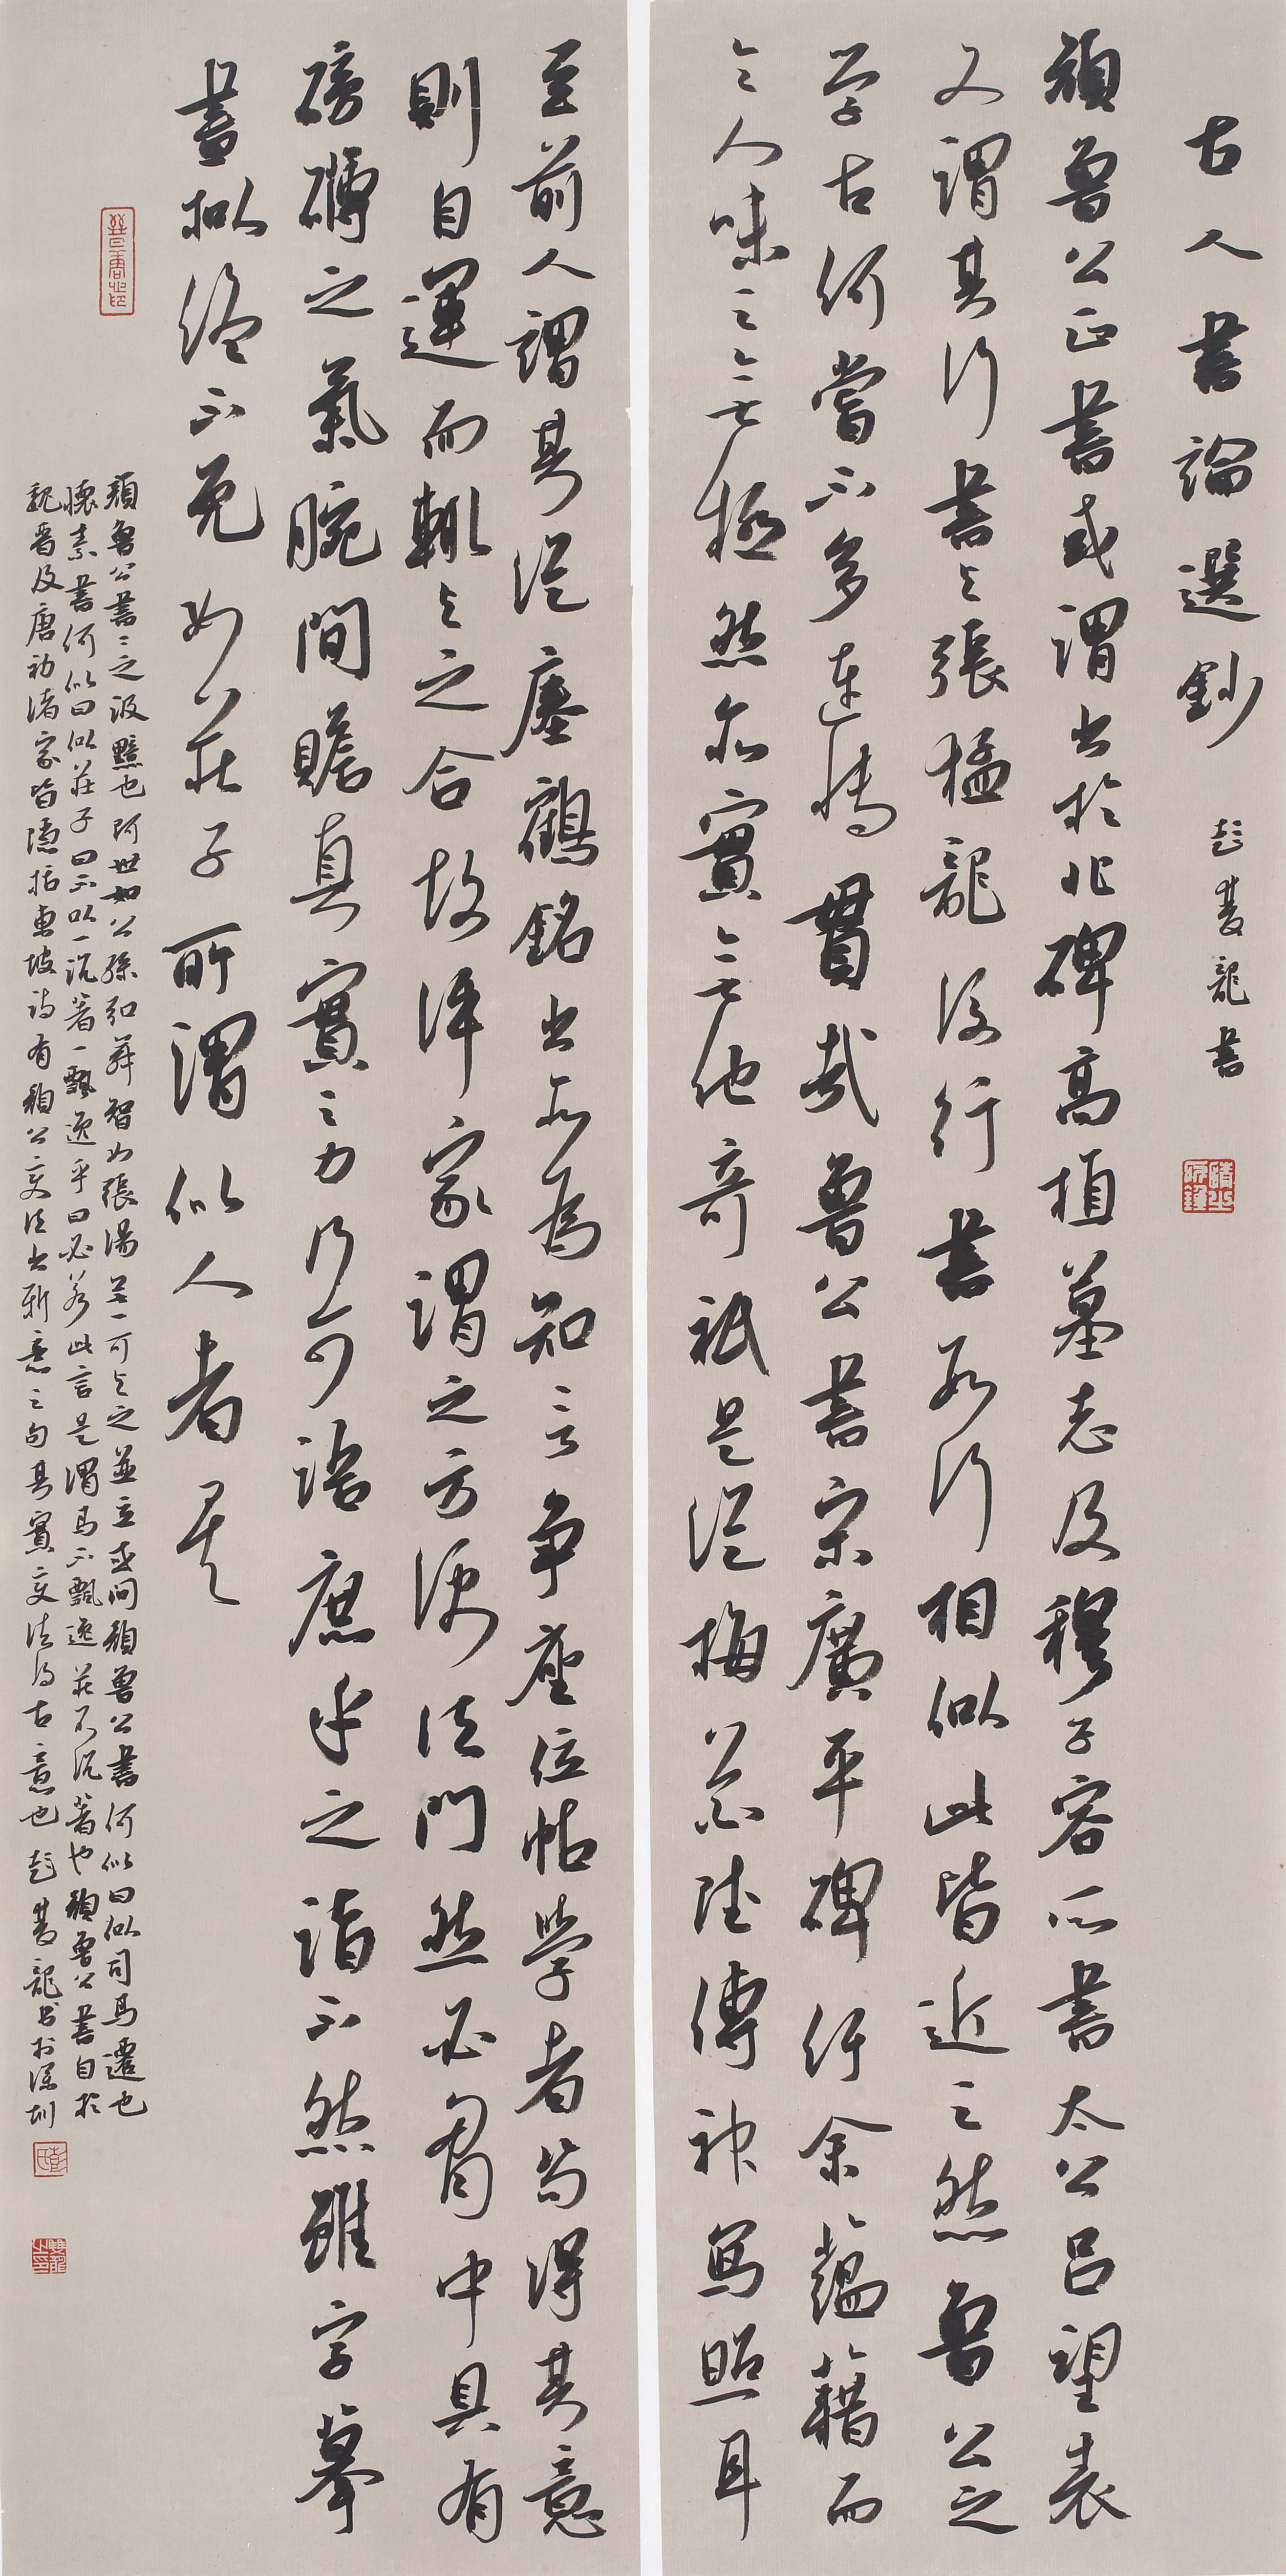 古人書論選鈔 彭雙龍書
顏魯公正書或謂出於北碑高植墓志及穆子容所書太公呂望表
又謂其行書與張猛龍後行書尤相似此皆近之然魯公之
学古何嘗不多連博貫哉魯公書宋廣平碑行余蘊藉而
令人味之無極然亦實無他奇祇是從梅花陸傳神寫照耳
至前人謂其從瘞鶴銘出亦為知言争座位帖學者苟得其意
則自運而輒與之合故評家謂之方便法門然必胷中具有
磅礴之氣腕間贍真實之力乃可語庶乎之詣不然雖字摹
畫擬終不免如莊子所謂似人者矣
顏魯公書書之汲黯也阿世如公孫弘舞智如張湯無一可與之並立或问顏魯公書何似曰似司馬遷也
懷素書何似曰似莊子曰不以一沉著一飄逸乎曰必若此言是謂馬不飄逸莊不沉著也顏魯公書自於
魏晋及唐初诸家皆隱括東坡詩有顏公變法出新意之句其實變法得古意也 彭雙龍书於深圳